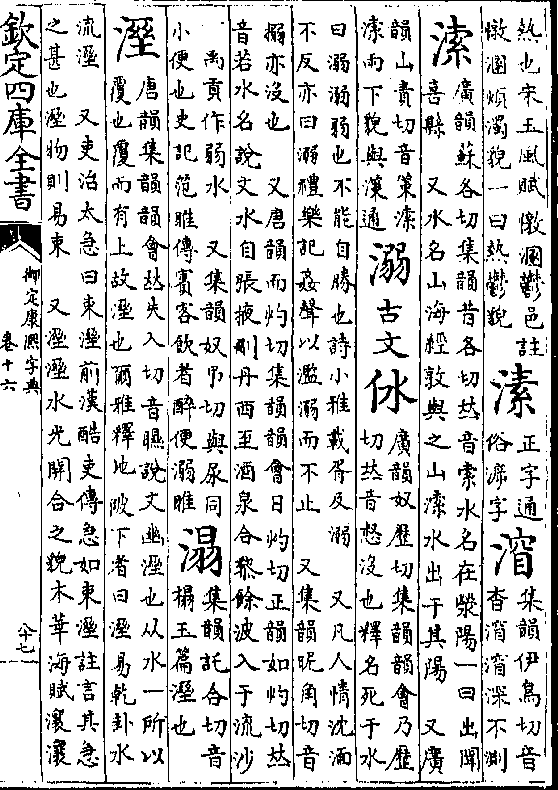 熱也宋玉風賦憞溷鬱邑註
憞溷煩濁貌一曰熱鬱貌
溸
正字通
俗㴑字
集韻伊鳥切音
溹
廣韻蘇各切集韻昔各切𠀤音索水名在滎陽一曰出聞
喜縣 又水名山海經敦與之山溹水出于其陽 又廣
韻山責切音策溹
溹雨下貌與漢通
溺 古文 㲻
廣韻奴歷切集韻韻會乃歷
切𠀤音惄沒也釋名死于水
曰溺溺弱也不能自勝也詩小雅載胥及溺 又凡人情沈湎
不反亦曰溺禮樂記姦聲以濫溺而不止 又集韻昵角切音
搦亦沒也 又唐韻而灼切集韻韻會日灼切正韻如灼切𠀤
音若水名說文水自張掖刪丹西至酒泉合黎餘波入于流沙
禹貢作弱水 又集韻奴弔切與尿同
小便也史記范雎傳賓客飲者醉便溺雎
溻
集韻託合切音
榻玉篇溼也
溼
唐韻集韻韻會𠀤失入切音說文幽溼也从水一所以
覆也覆而有土故溼也爾雅釋地陂下者曰溼易乾卦水
流溼 又吏治太急曰束溼前漢酷吏傳急如束溼註言其急
之甚也溼物則易束 又溼溼水光開合之貌木華海賦瀼瀼
欽定四庫全書
御定康熙字典
卷十六
八十七